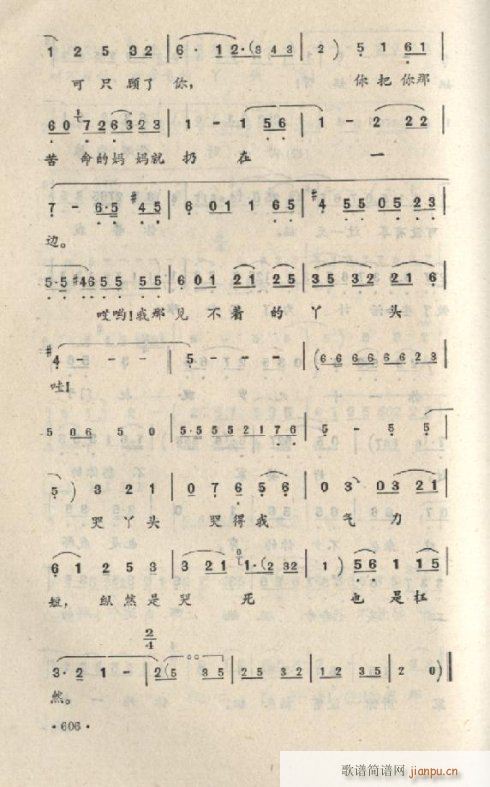 1 2 5 32 | 6·12·(343 | 2) 5 1 61 |
可只顾了你， 你把你那
60 726323 | 1 - 1 56 | 1 - 2 22 |
苦命的妈妈就扔在一
7 - 6·5 #45 | 601 1 65 | #4 55 0523 |
边。
5·5 #4655 55 | 601 21 25 | 3532 21 6 |
哎哟！我那见不着的丫头
#4 - - - | 5 - - - | (6·666 666623 |
哇！
5 06 5 0 | 5·555 52176 | 5 - 5 5 |
5) 3 21 | 07 65 6 | 03 03 21 |
哭丫头哭得我气力
61 2 5 3 | 3 21 1·(232 | 1) 561 15 |
短，纵然是哭死也是枉
3·2 1 - | 2/4 2(5 35 | 25 32 | 12 35 | 2 0) ‖
然。
·606·
歌谱简谱网
jianpu.cn